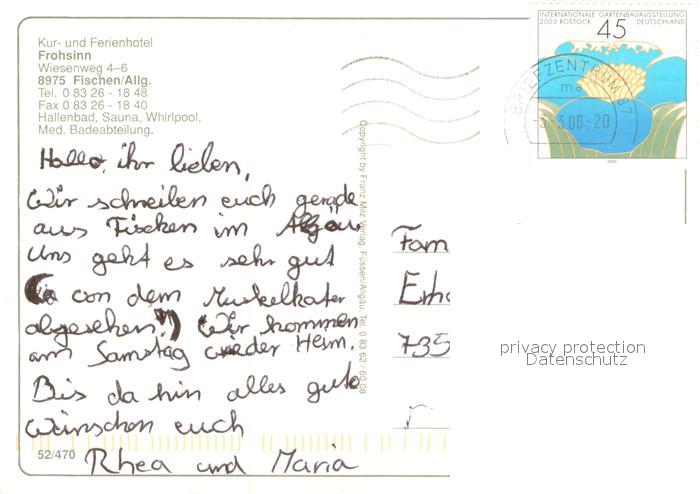 Kur- und Ferienhotel
Frohsinn
Wiesenweg 4–6
8975 Fischen/Allg.
Tel. 0 83 26 - 18 48
Fax 0 83 26 - 18 40
Hallenbad, Sauna, Whirlpool,
Med. Badeabteilung.
INTERNATIONALE GARTENBAUAUSSTELLUNG
2003 ROSTOCK DEUTSCHLAND
45
BRIEFZENTRUM 87
ma
-3.-3.06-20
Hallo, ihr lieben,
Wir schreiben euch gerade
aus Fischen im Allgäu
Uns geht es sehr gut
von dem Muskelkater
abgesehen!) Wir kommen
am Samstag wieder Heim.
Bis da hin alles gute
wünschen euch
Rhea und Maria
Copyright by Franz Milz Verlag, Füssen/Allgäu, Tel. 0 83 62 / 60 08
Fam
Erh
735
privacy protection
Datenschutz
52/470